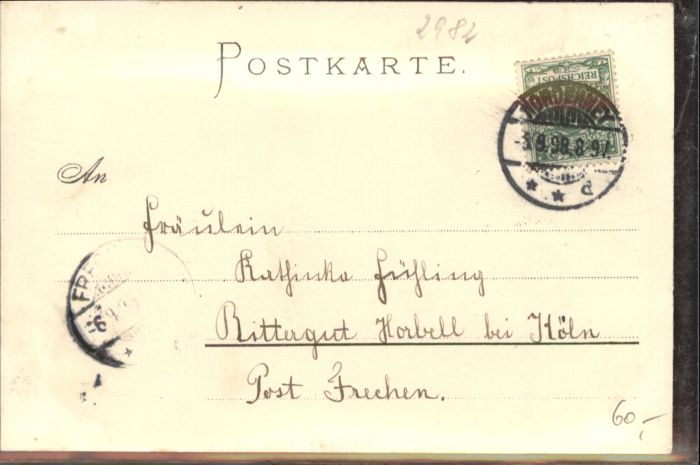 2982
POSTKARTE.
REICHSPOST
NORDERNEY
3.9.98.8-9V
An
Fräulein
Kathinka Fühling
Rittergut Horbell bei Köln
Post Frechen.
FRE
60,-